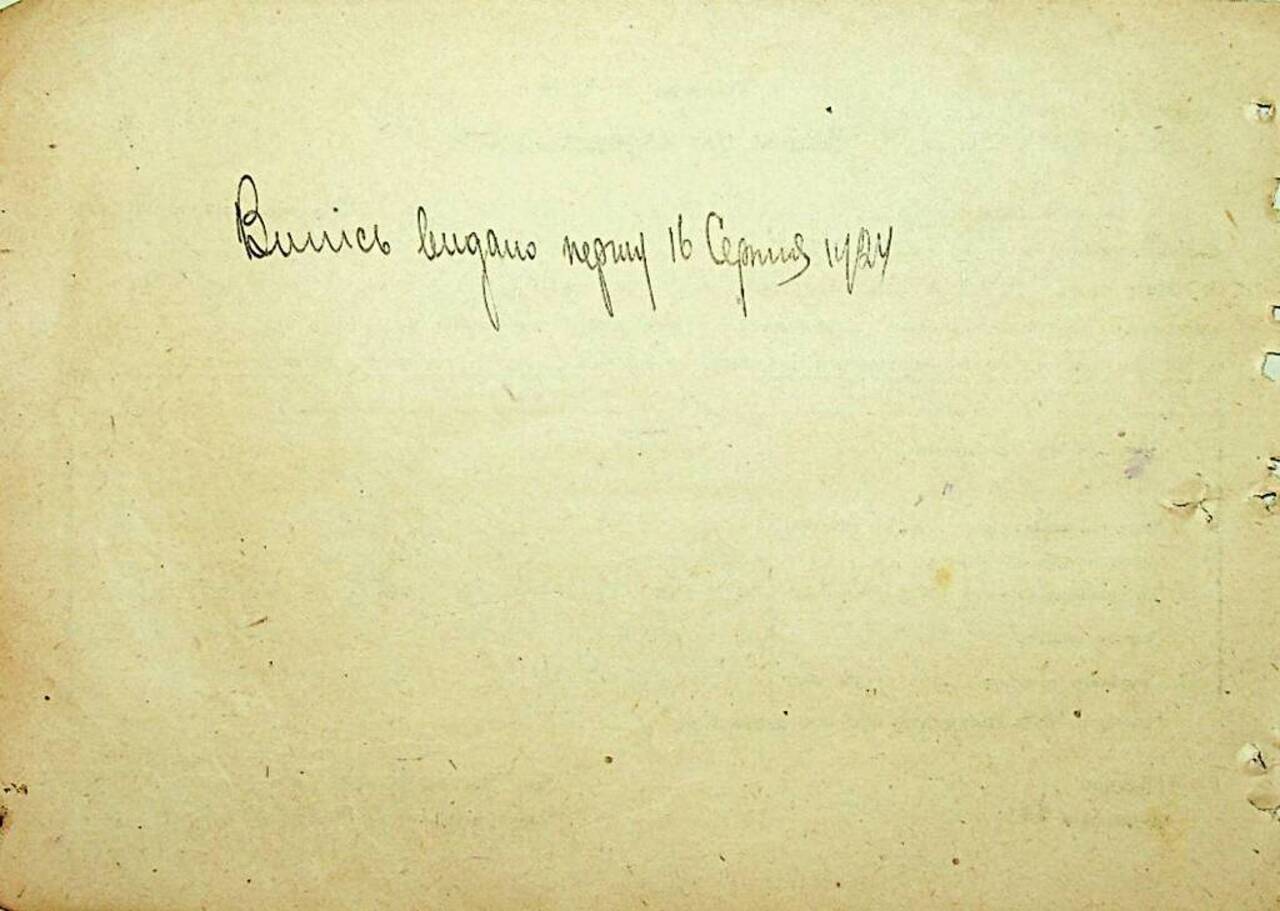 Випісь видано першу 16 Серпня 1924